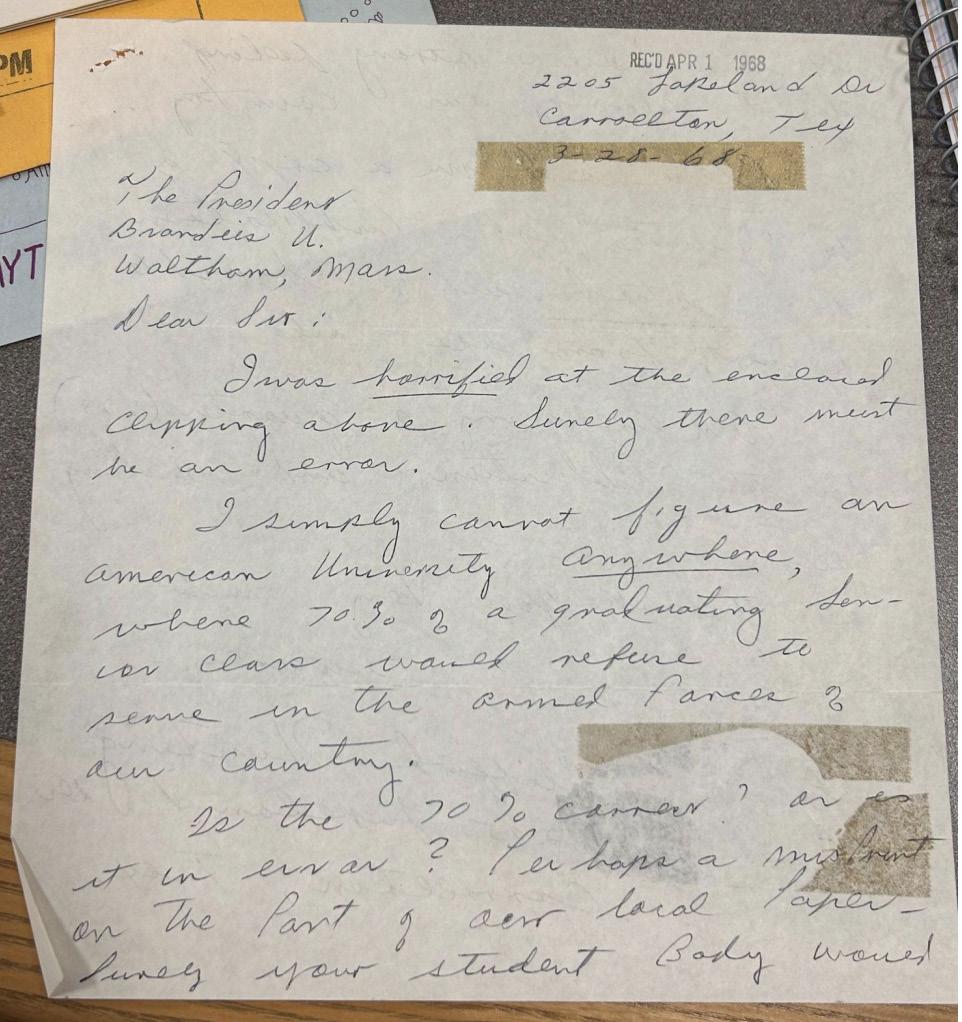 PM
AYT
REC'D APR 1 1968
2205 Lakeland Dr
Carrollton, Tex
3-28-68
The President
Brandeis U.
Waltham, Mass.
Dear Sir:
I was horrified at the enclosed
clipping above. Surely there must
be an error.
I simply cannot figure an
American University anywhere,
where 70% of a graduating Sen-
ior class would refuse to
serve in the armed forces of
our country.
Is the 70% correct? or is
it in error? Perhaps a misprint
on the Part of our local Paper-
Surely your student Body would